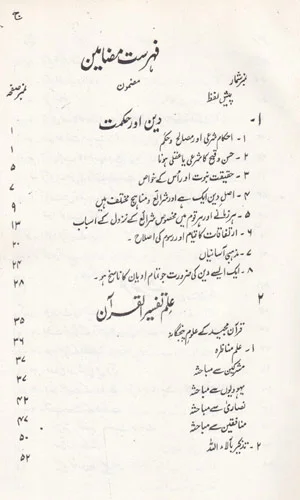 ج
فہرست مضامین
نمبر شمار مضمون نمبر صفحہ
پیش لفظ
۱- دین اور حکمت ۱
۱ - احکام شرعی اور مصالح و حکم ۱
۲ - حسن و قبح کا شرعی یا عقلی ہونا ۵
۳ - حقیقت نبوت اور اُس کے خواص ۷
۴ - اصل دین ایک ہے اور شرائع و مناہج مختلف ہیں ۹
۵ - ہر زمانے اور ہر قوم میں مخصوص شرائع کے نزول کے اسباب ۱۳
۶ - ارتفاقات کا قیام اور رسوم کی اصلاح - ۲۰
۷ - مذہبی آسانیاں ۲۴
۸ - ایک ایسے دین کی ضرورت جو تمام ادیان کا ناسخ ہو - ۲۸
۲ علم تفسیر القرآن ۳۵
قرآن مجید کے علوم پنجگانہ ۳۶
۱- علم مناظرہ ۳۷
مشرکین سے مباحثہ ۳۷
یہودیوں سے مباحثہ ۴۲
نصاریٰ سے مباحثہ ۴۷
منافقین سے مباحثہ ۵۰
۲ - تذکیر بآلاء اللہ ۵۲